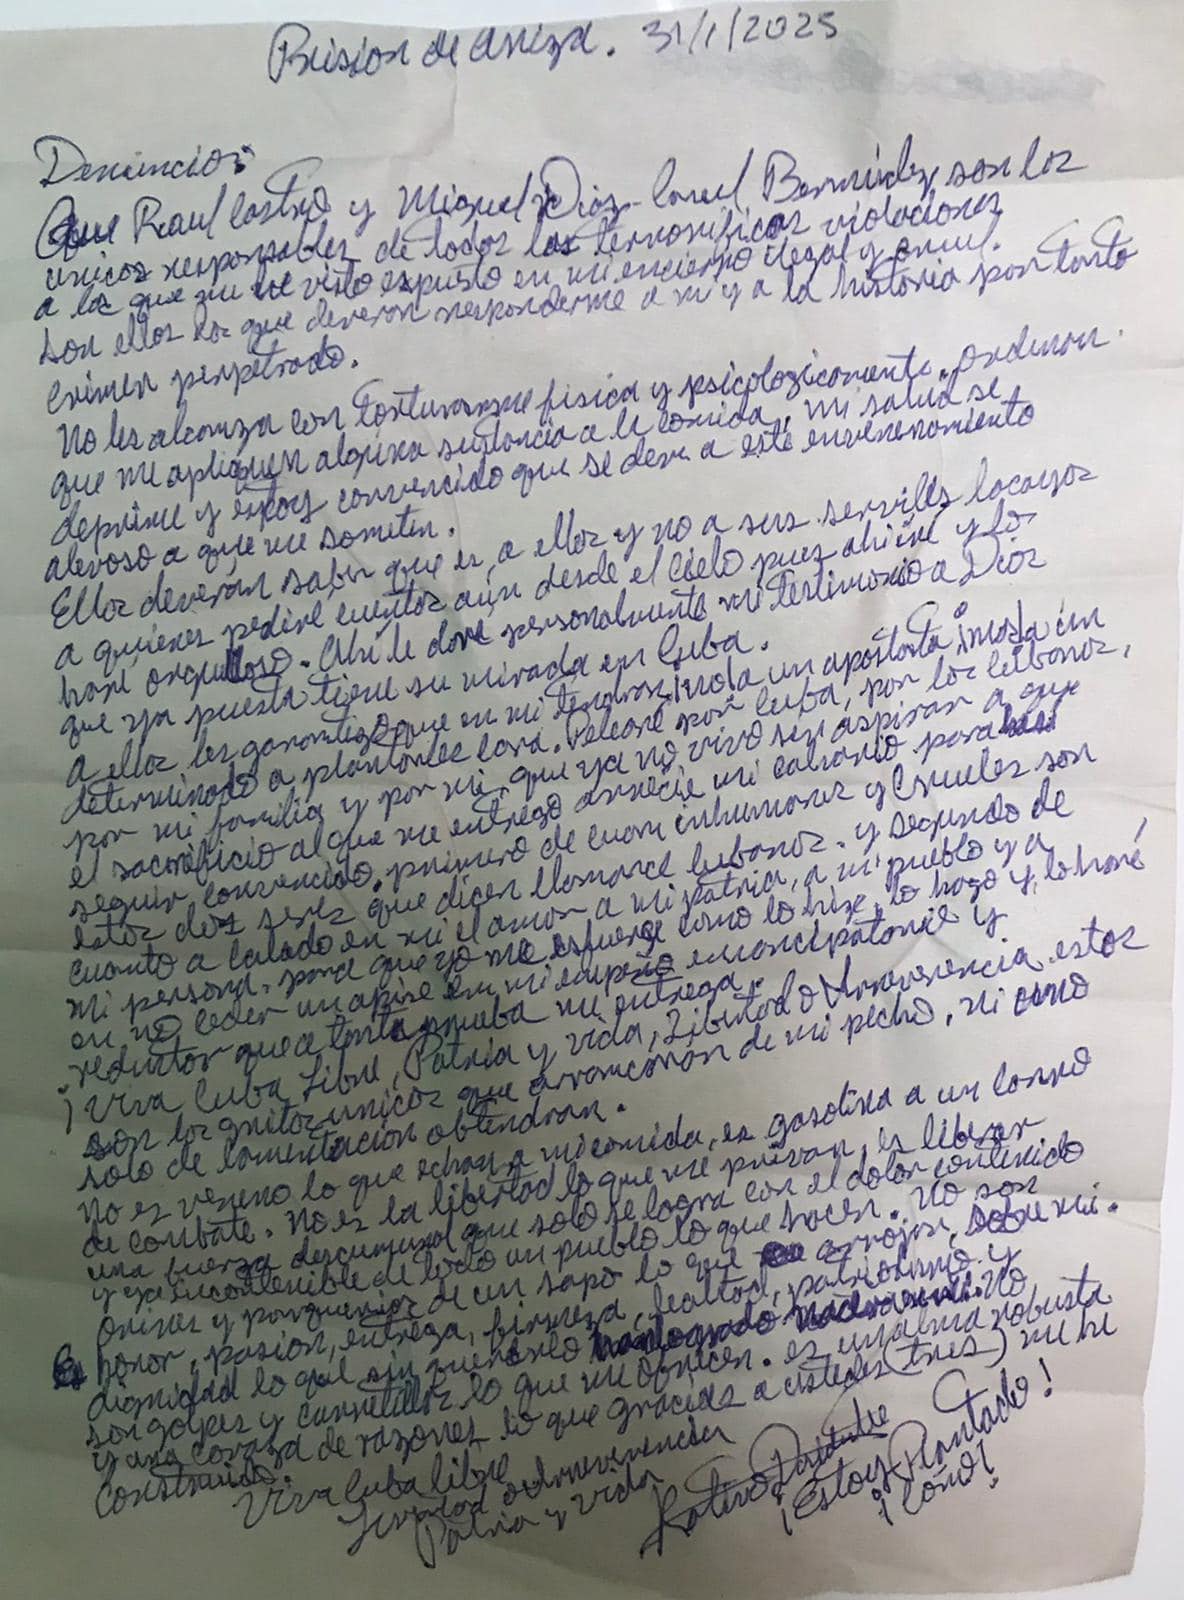 Prision de ariza. 31/1/2025
Denuncio:
Que Raul Castro y Miguel Diaz-Canel Bermudez son los
unicos responsables de todas las terrorificas violaciones
a las que me he visto expuesto en mi encierro ilegal y cruel.
Son ellos los que deveran responderme a mi y a la historia por tanto
crimen perpetrado.
No les alcanza con torturarme fisica y psicologicamente. Ordenan
que me apliquen alguna sustancia a la comida, mi salud se
deprime y estoy convencido que se deve a este envenenamiento
alevoso a que me someten.
Ellos deverán saber que es a ellos y no a sus serviles lacayos
a quienes pediré cuentas aún desde el cielo pues ahi iré y lo
haré orgulloso. Ahi le daré personalmente mi testimonio a Dios
que ya puesta tiene su mirada en Cuba.
A ellos les garantizo que en mi tendran no a un apostata, mas a un
determinado a plantarles cara. Pelearé por Cuba, por los cubanos,
por mi familia y por mi, que ya no vivo sin aspirar a que
el sacrificio al que me entrego arrecie mi calvario para
seguir convencido, primero de cuan inhumanos y crueles son
estos dos seres que dicen llamarce cubanos. y segundo de
cuanto a calado en mi el amor a mi patria, a mi pueblo y a
mi persona. para que yo me esfuerze como lo hize, lo hago y lo haré
en no ceder un apice en mi empeño emancipatorio y
reductor que a tanta prueba mi entrega.
¡Viva Cuba Libre, Patria y Vida, Libertad o Irreverencia estos
son los gritos unicos que arrancarán de mi pecho, ni como
solo de lamentacion obtendran.
No es veneno lo que echan a mi comida, es gasolina a un carro
de combate. No es la libertad lo que me privan, es liberar
una fuerza descomunal que solo se logra con el dolor contenido
y ya incontenible de todo un pueblo lo que hacen. No son
orines y porquerias de un sapo lo que arrojan sobre mi.
Es honor, pasion, entrega, firmeza, lealtad, patriotismo y
dignidad lo que sin quererlo No
son golpes y carretillas lo que me ofrecen. es un alma robusta
y una coraza de razones lo que gracias a ustedes (tres) me he
construido.
Viva Cuba libre
Libertad o Irreverencia
Patria y Vida
¡Estoy Plantado!
¡Coño!